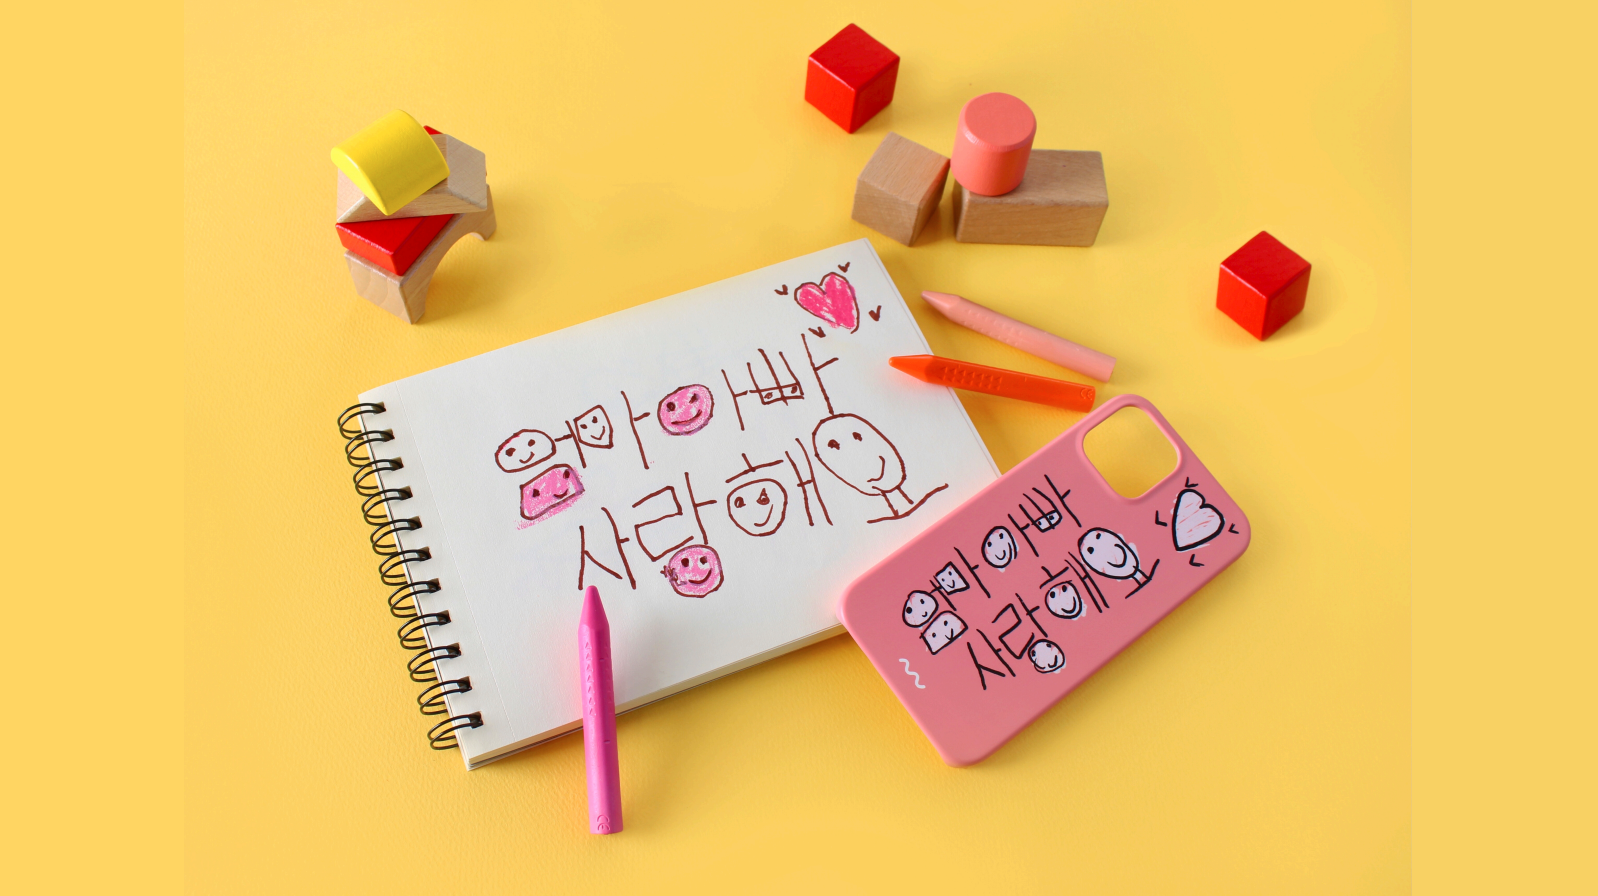 엄마아빠
사랑해요
엄마아빠
사랑해요
CE